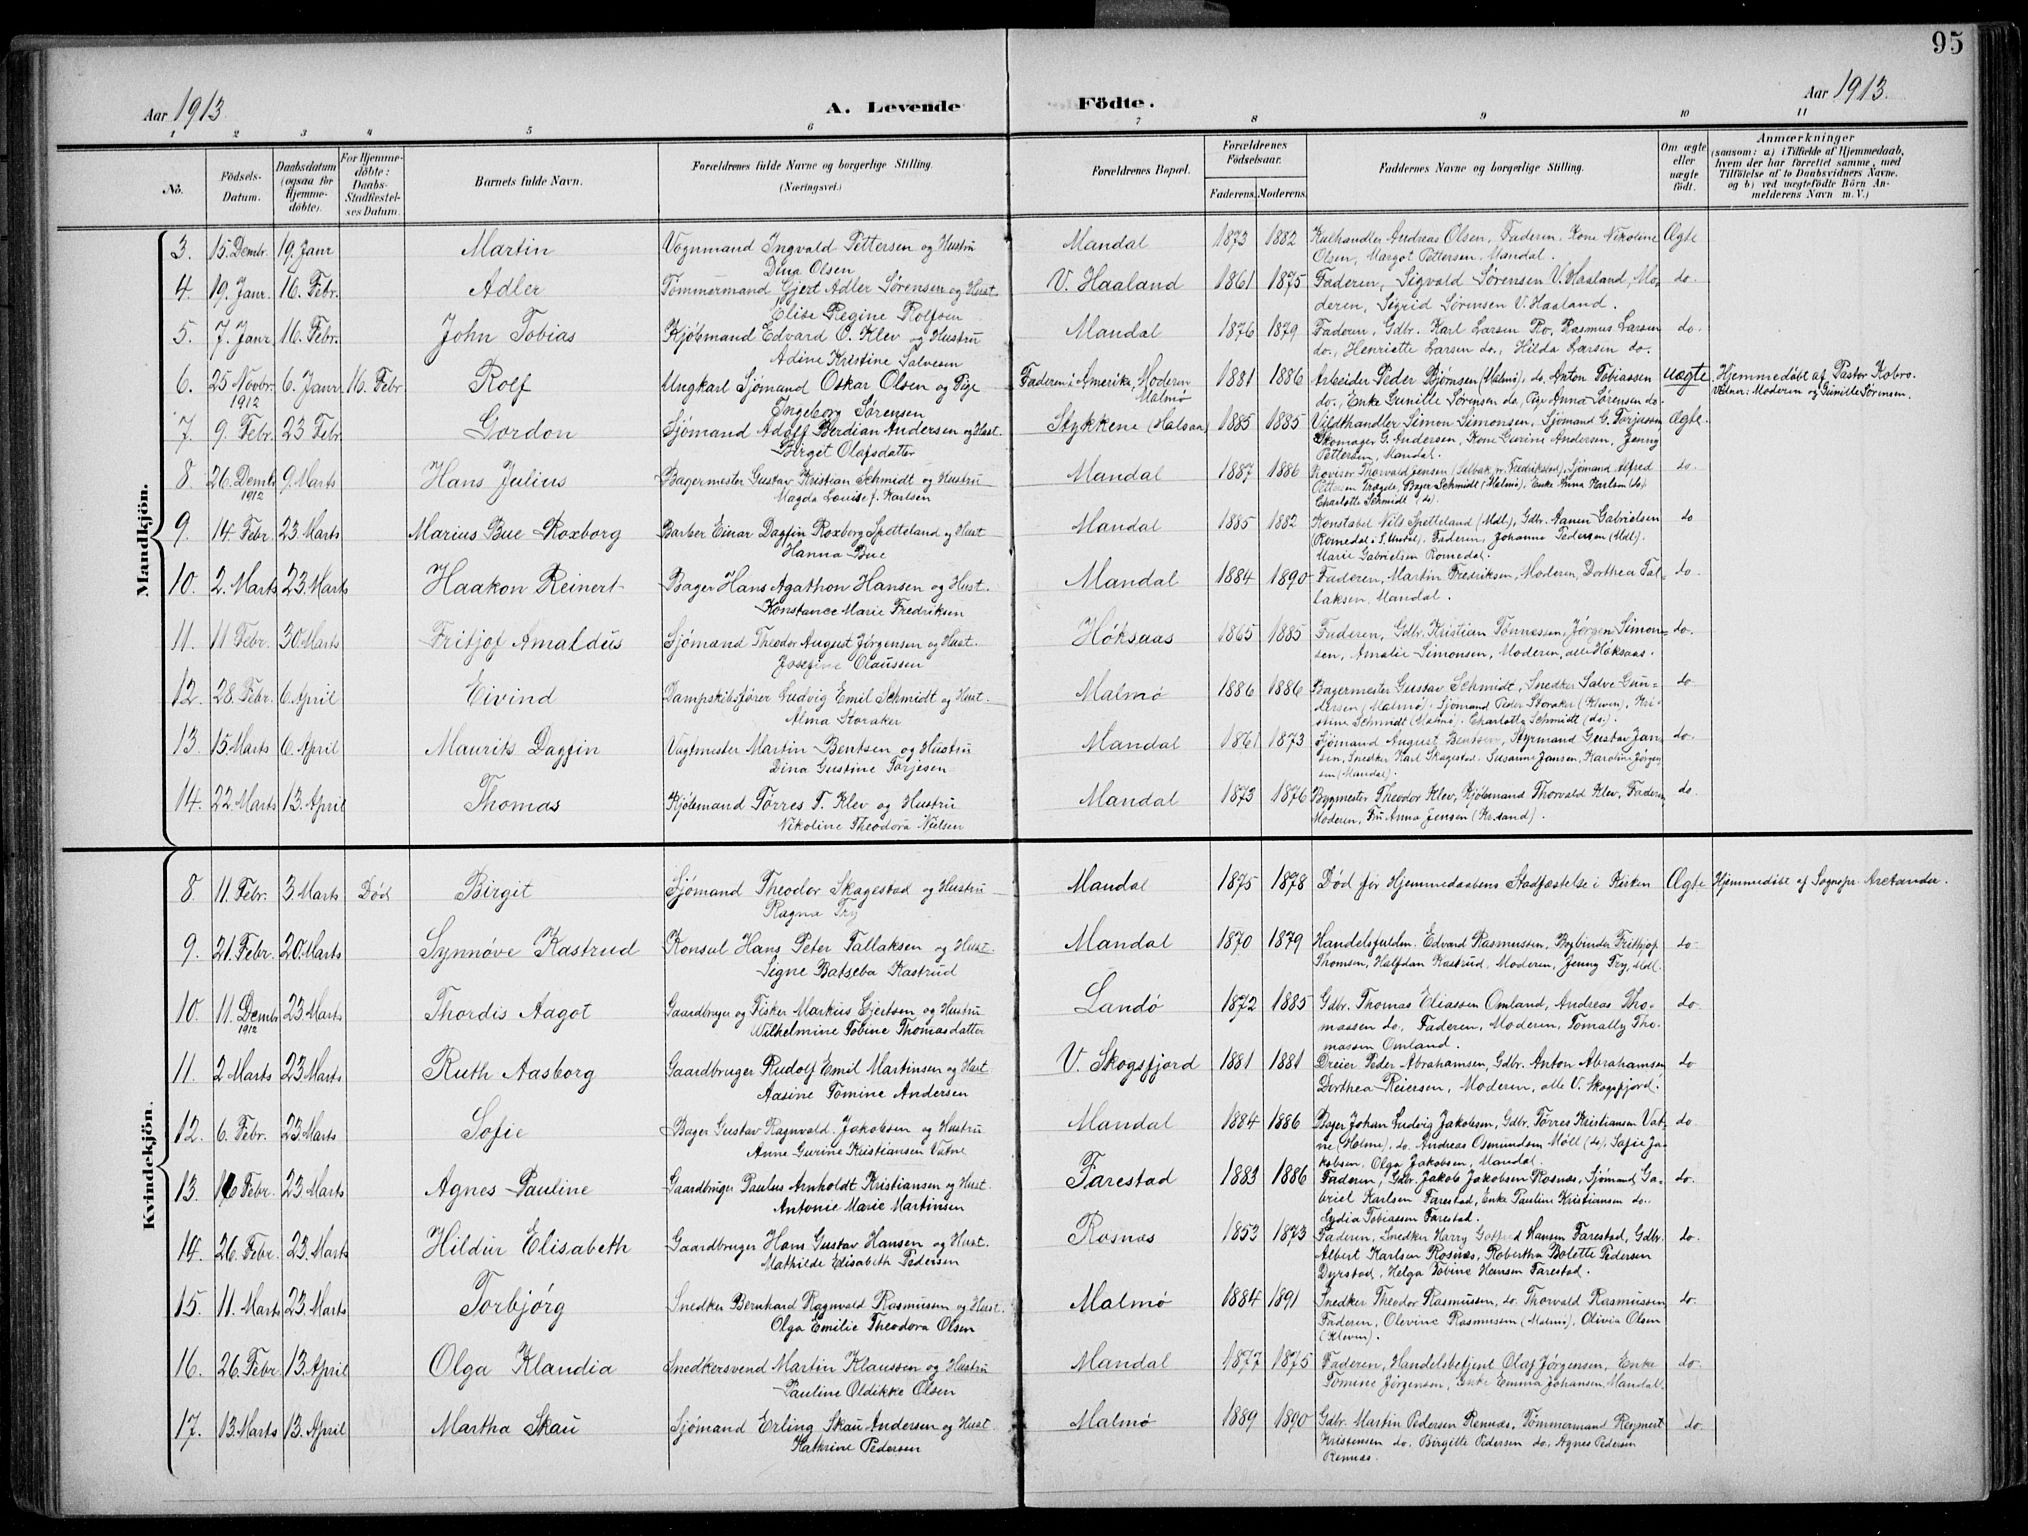 95
Aar 1913.
A. Levende
Födte.
Aar 1913.
1 2 3 4 5 6 7 8 9 10 11
No.
Födsels-
Datum.
Daabsdatum
(ogsaa for
Hjemme-
döbte).
For Hjemme-
döbte:
Daabs-
Stadfæstel-
ses Datum.
Barnets fulde Navn.
Forældrenes fulde Navne og borgerlige Stilling.
(Næringsvei.)
Forældrenes Bopæl.
Forældrenes
Födselsaar.
Faderens. Moderens.
Faddernes Navne og borgerlige Stilling.
Om ægte
eller
uægte
födt.
Anmærkninger
(saasom: a.) i Tilfælde af Hjemmedaab,
hvem der har forrettet samme, med
Tilföielse af to Daabsvidners Navne,
og b) ved uægtefödte Börn An-
melderens Navn m. V.)
Mandkjön.
3. 15. Dembr. 19. Janr Martin Vognmand Ingvald Pettersen og Hustru Mandal 1873 1882 Kulhandler Andreas Olsen, Faderen, Kone Nikoline Ægte
Dina Olsen Olsen, Margot Pettersen, Mandal.
4. 19. Janr. 16. Febr. Adler Tømmermand Gjert Adler Sørensen og Hust. V. Haaland 1861 1875 Faderen, Sigvald Sørensen V. Haaland, Mo- do.
Elise Regine Rolfsen deren, Sigrid Sørensen V. Haaland.
5. 7. Janr 16. Febr. John Tobias Kjøbmand Edvard O. Klev og Hustru Mandal 1876 1879 Faderen, Gdbr. Karl Larsen Ro, Rasmus Larsen do.
Adine Kristine Salvesen do., Henriette Larsen do., Hilda Larsen do.
6. 25 Novbr. 6. Janr 16. Febr Rolf Ungkarl Sjømand Oskar Olsen og Pige Faderen i Amerika, Moderen 1881 1886 Arbeider Peder Bjørnsen (Malmø), do. Anton Tobiassen uægte Hjemmedøbt af Pastor Kobro.
1912 Ingeborg Sørensen Malmø do., Enke Gunille Sørensen do., Pige Anna Sørensen do. Vidner: Moderen og Gunille Sørensen.
7. 9. Febr. 23 Febr. Gordon Sjømand Adolf Berdian Andersen og Hust. Stykkene (Halsaa) 1885 1885 Vildthandler Simon Simonsen, Sjømand G. Torjesen Ægte.
Birget Olafsdatter Skomager G. Andersen, Kone Gurine Andersen, Jenny
Pettersen, Mandal.
8. 26. Dembr 9. Marts Hans Julius Bagermester Gustav Kristian Schmidt og Hustru Mandal 1887 1886 Thorvald Jensen (Selbak pr. Fredrikstad), Sjømand Alfred do.
1912 Magda Louise f. Karlsen Pettersen Bager Schmidt (Malmø), Enke Anna Karlsen (do)
Charlotte Schmidt (do).
9. 14. Febr. 23. Marts Marius Bue Roxborg Barber Einar Dagfin Roxborg Spetteland og Hust Mandal 1885 1882 Konstabel Nils Spetteland (Mdl), Gdbr. Aanen Gabrielsen do
Hanna Bue (Romedal i S. Undal). Faderen, Johanne Pedersen (Mdl).
Marie Gabrielsen Romedal.
10. 2. Marts 23. Marts Haakon Reinert Bager Hans Agathon Hansen og Hust. Mandal 1884 1890 Faderen, Martin Fredriksen, Moderen, Dorthea Tal- do.
Konstance Marie Fredriksen laksen, Mandal.
11. 11 Febr. 30. Marts Fritjof Arnaldus Sjømand Theodor August Jørgensen og Hust. Høksaas 1865 1885 Faderen, Gdbr. Kristian Tønnessen, Jørgen Simon- do.
Josefine Olaussen sen, Amalie Simonsen, Moderen, alle Høksaas.
12. 28. Febr. 6. April Eivind Dampskibsfører Ludvig Emil Schmidt og Hust. Malmø 1886 1886 Bagermester Gustav Schmidt, Snedker Salve Gun- do
Alma Storaker dersen (Malmø). Sjømand Peder Storaker (Kleven), Kri-
stine Schmidt (Malmø). Charlotte Schmidt (do).
13. 15. Marts 6. April Maurits Dagfin Vagtmester Martin Bentsen og Hustru Mandal 1861 1873 Sjømand August Bentsen, Styrmand Gustav Jan- do.
Dina Gustine Torjesen sen, Snedker Karl Skagestad. Susanne Jansen, Karoline Jørgen-
sen (Mandal).
14. 22. Marts 13. April Thomas Kjøbmand Tørres T. Klev og Hustru Mandal 1873 1876 Bygmester Theodor Klev, Kjøbmand Thorvald Klev, Faderen do.
Nikoline Theodora Nielsen Moderen, Fru Anna Jensen (Kr.sand).
Kvindekjön.
8. 11. Febr. 3. Marts Død Birgit Sjømand Theodor Skagestad og Hustru Mandal 1875 1878 Død før Hjemmedaabens Stadfæstelse i Kirken Ægte Hjemmedøbt af Sognepr. Arctander.
Ragna Try
9. 21. Febr. 20. Marts Synnøve Kastrud Konsul Hans Peter Tallaksen og Hust. Mandal 1870 1879 Handelsfuldm. Edvard Rasmussen, Bogbinder Frithjof do
Signe Batseba Kastrud Thomsen, Halfdan Kastrud, Moderen, Jenny Try, Mdl.
10. 11. Dembr 23. Marts Thordis Aagot Gaardbruger og Fisker Markus Gjertsen og Hustru Landø 1872 1885 Gdbr. Thomas Eliassen Omland, Andreas Tho- do.
1912 Wilhelmine Tobine Thomasdatter massen do, Faderen, Moderen, Tomally Tho-
massen Omland.
11. 2. Marts 23. Marts Ruth Aasborg Gaardbruger Rudolf Emil Martinsen og Hust V. Skogsfjord 1881 1881 Dreier Peder Abrahamsen, Gdbr. Anton Abrahamsen do
Aasine Tomine Andersen Dorthea Reiersen, Moderen, alle V. Skogsfjord.
12. 6. Febr. 23. Marts Sofie Bager Gustav Ragnvald Jakobsen og Hustru Mandal 1884 1886 Bager Johan Ludvig Jakobsen, Gdbr. Tørres Kristiansen Vat- do.
Anne Gurine Kristiansen Vatne ne (Holme). do. Andreas Osmundsen Møll (do). Sofie Ja-
kobsen, Olga Jakobsen, Mandal.
13. 16 Febr. 23. Marts Agnes Pauline Gaardbruger Paulus Arnholdt Kristiansen og Hust. Farestad 1883 1886 Faderen, Gdbr. Jakob Jakobsen Rosnæs, Sjømand Ga- do.
Antonie Marie Martinsen briel Karlsen Farestad, Enke Pauline Kristiansen do.
Lydia Tobiassen Farestad.
14. 26. Febr 23. Marts Hildur Elisabeth Gaardbruger Hans Gustav Hansen og Hust. Rosnæs 1853 1873 Faderen, Snedker Harry Gotfred Hansen Farestad, Gdbr. do.
Mathilde Elisabeth Pedersen Albert Karlsen Rosnæs, Robertha Bolette Pedersen
Dyrstad, Helga Tobine Hansen Farestad.
15. 11. Marts 23. Marts Torbjørg Snedker Bernhard Ragnvald Rasmussen og Hust. Malmø 1884 1891 Snedker Theodor Rasmussen, do. Thorvald Rasmussen do.
Olga Emilie Theodora Olsen Faderen, Olevine Rasmussen (Malmø), Olivia Olsen
(Kleven).
16. 26. Febr 13. April Olga Klaudia Snedkersvend Martin Klaussen og Hustru Mandal 1877 1875 Faderen, Handelsbetjent Olaf Jørgensen, Enke do.
Pauline Oldikke Olsen Tomine Jørgensen, Enke Emma Johansen, Mandal.
17. 13. Marts 13. April Martha Skau Sjømand Erling Skau Andersen og Hust. Malmø 1889 1890 Gdbr. Martin Pedersen Rennæs, Tømmermand Reymert do.
Kathrine Pedersen Kristensen do. Birgitte Pedersen do, Agnes Pedersen
Rennæs.